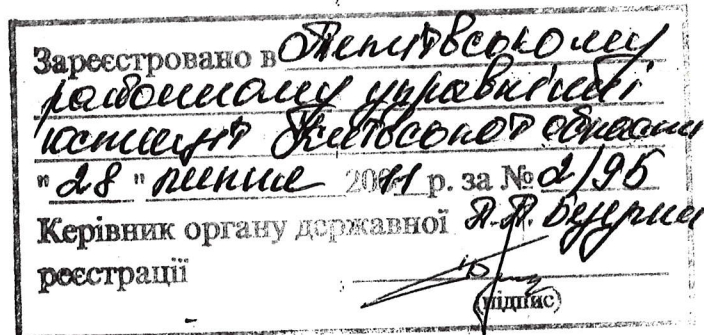 Зареєстровано в Тетіївському
районному управлінні
юстиції Київської області
"28" липня 2011 р. за № 2/95
Керівник органу державної
реєстрації
(підпис)